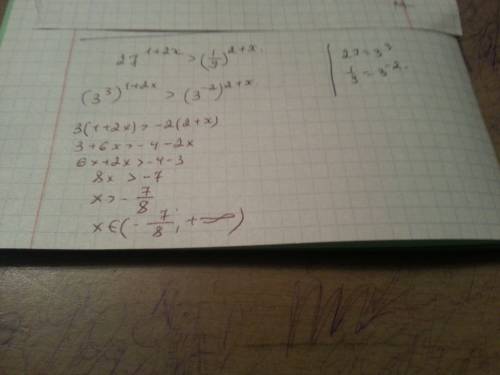 27^{1+2x} > (1/9)^{2+x}.
(3^3)^{1+2x} > (3^{-2})^{2+x}
3(1+2x) > -2(2+x)
3+6x > -4-2x
6x+2x > -4-3
8x > -7
x > -7/8
x∈(-7/8; +∞)
27=3^3
1/9=3^{-2}.